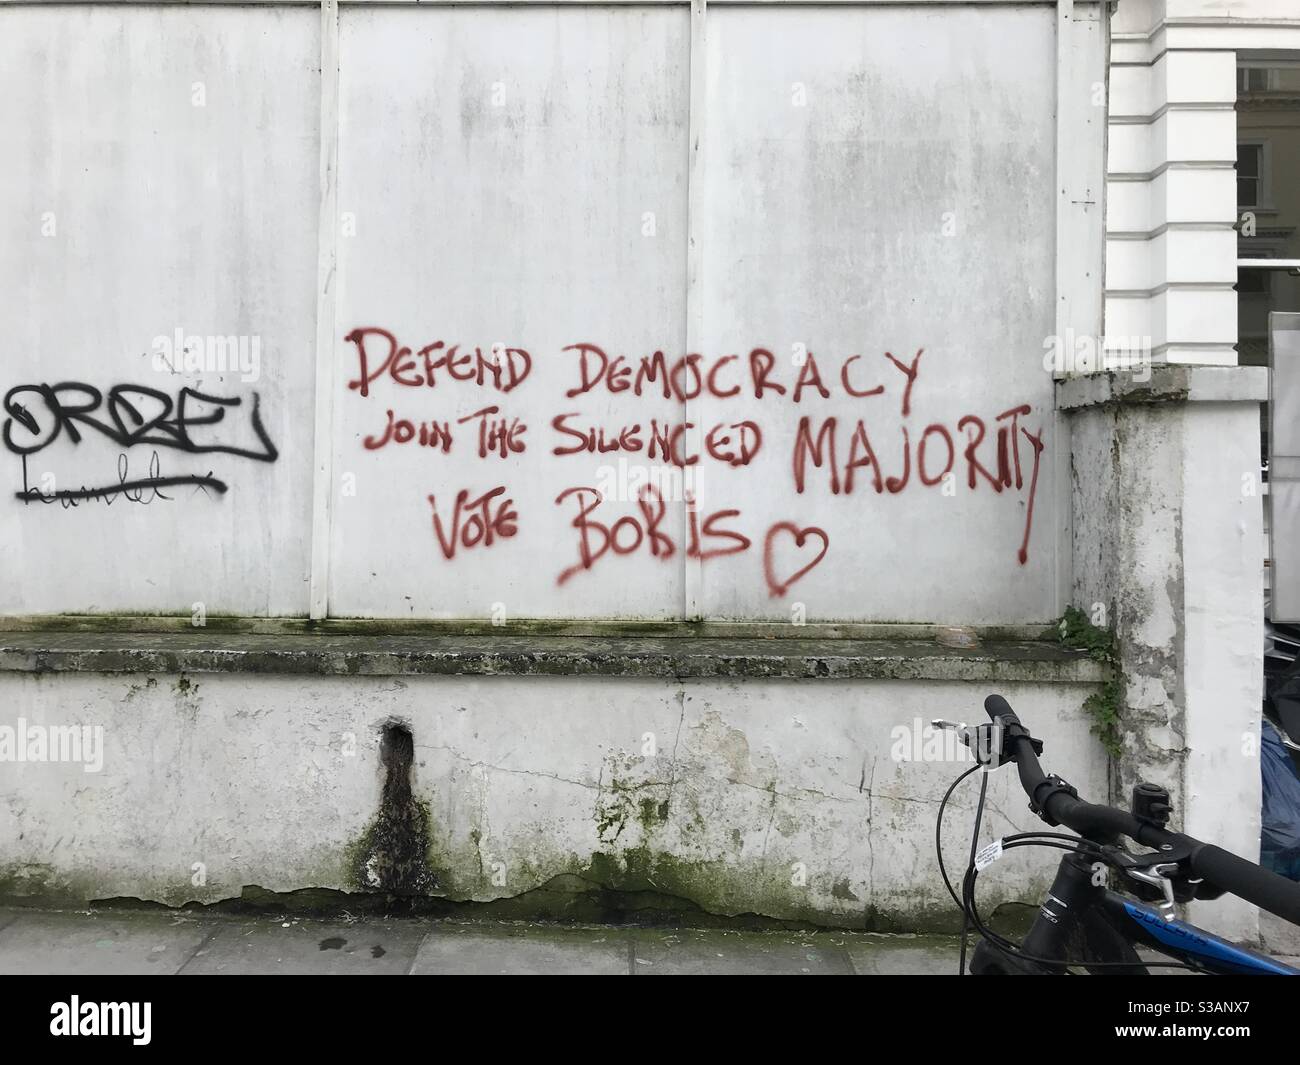 DEFEND DEMOCRACY
JOIN THE SILENCED MAJORITY
VOTE BORIS
hamlet x
alamy
alamy
Image ID: S3ANX7
www.alamy.com